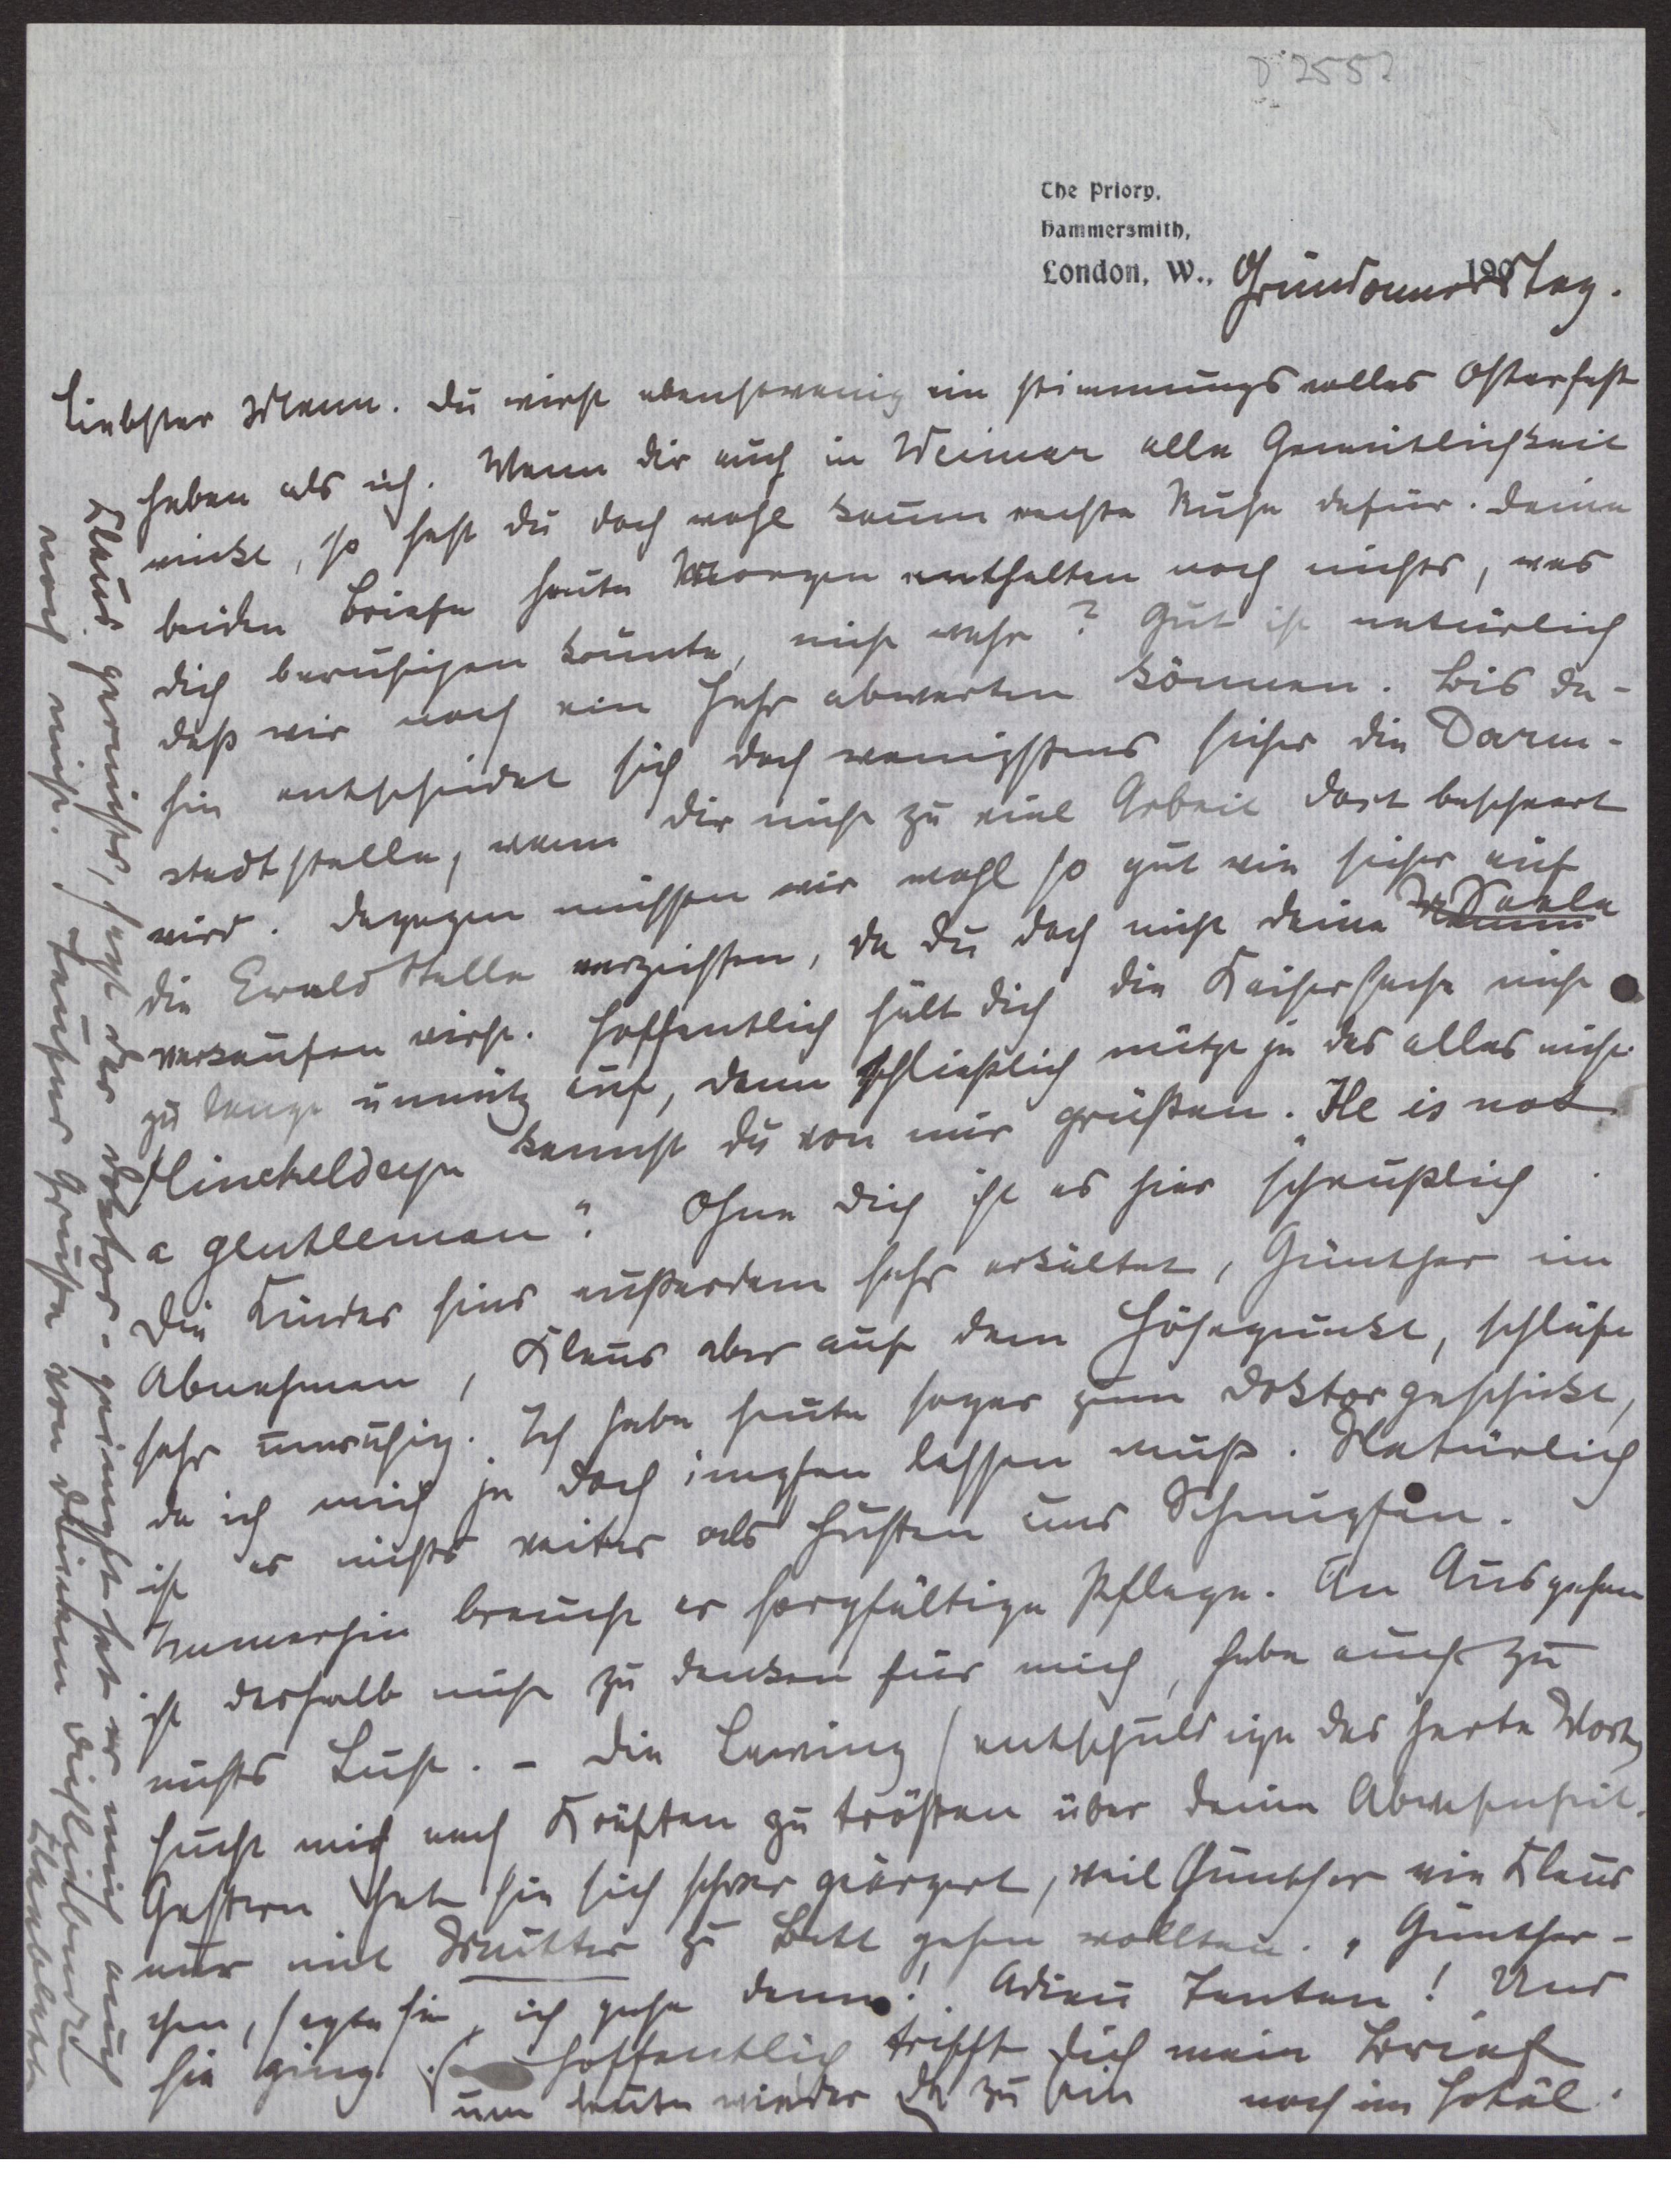 D 2552
The Priory,
Hammersmith,
London, W., 190
Gründonnerstag.
Liebster Mann. Du wirst ebensowenig ein stimmungsvolles Osterfest
haben als ich. Wenn dir auch in Weimar alle Gemütlichkeit
winkt, so hast du doch wohl kaum rechte Ruhe dafür. Deine
beiden Briefe heute Morgen enthalten noch nichts, was
dich beruhigen könnte, nicht wahr? Gut ist natürlich
daß wir noch ein Jahr abwarten können. Bis da-
hin entscheidet sich doch wenigstens sicher die Darm-
stadtstelle, wenn dir nicht zu viel Arbeit dort bescheert
wird. Dagegen müssen wir wohl so gut wie sicher auf
die Ewald Stelle verzichten, da du doch nicht deine Seele
verkaufen wirst. Hoffentlich hält dich die Kaisersache nicht
zu lange unnütz auf, denn schließlich nützt ja das alles nicht.
Hinckeldeyn kannst du von mir grüßen. "He is not
a glentleman". Ohne dich ist es hier scheußlich.
Die Kinder sind außerdem sehr erkältet, Günther im
Abnehmen, Klaus aber auf dem Höhepunkt, schläft
sehr unruhig. Ich habe heute sogar zum Doktor geschickt,
da ich mich ja doch impfen lassen muß. Natürlich
ist es nichts weiter als Husten und Schnupfen.
Immerhin braucht er sorgfältige Pflege. An Ausgehen
ist deshalb nicht zu denken für mich, habe auch zu
nichts Lust. – Die Lewing (entschuldige das harte Wort)
sucht mich nach Kräften zu trösten über deine Abwesenheit.
Gestern hat sie sich schwer geärgert, weil Günther wie Klaus
nur mit Mutter zu Bett gehen wollten. "Günther-
chen, sagte sie, ich gehe denn! Adieu Tanten! Und
sie ging. (
um heute wieder da zu sein
Hoffentlich trifft dich mein Brief
noch im Hotel.
Klaus gemustert, sagt der Doktor - geimpft hat er mich auch
noch nicht. Tausend Grüße von Deinem dichliebenden